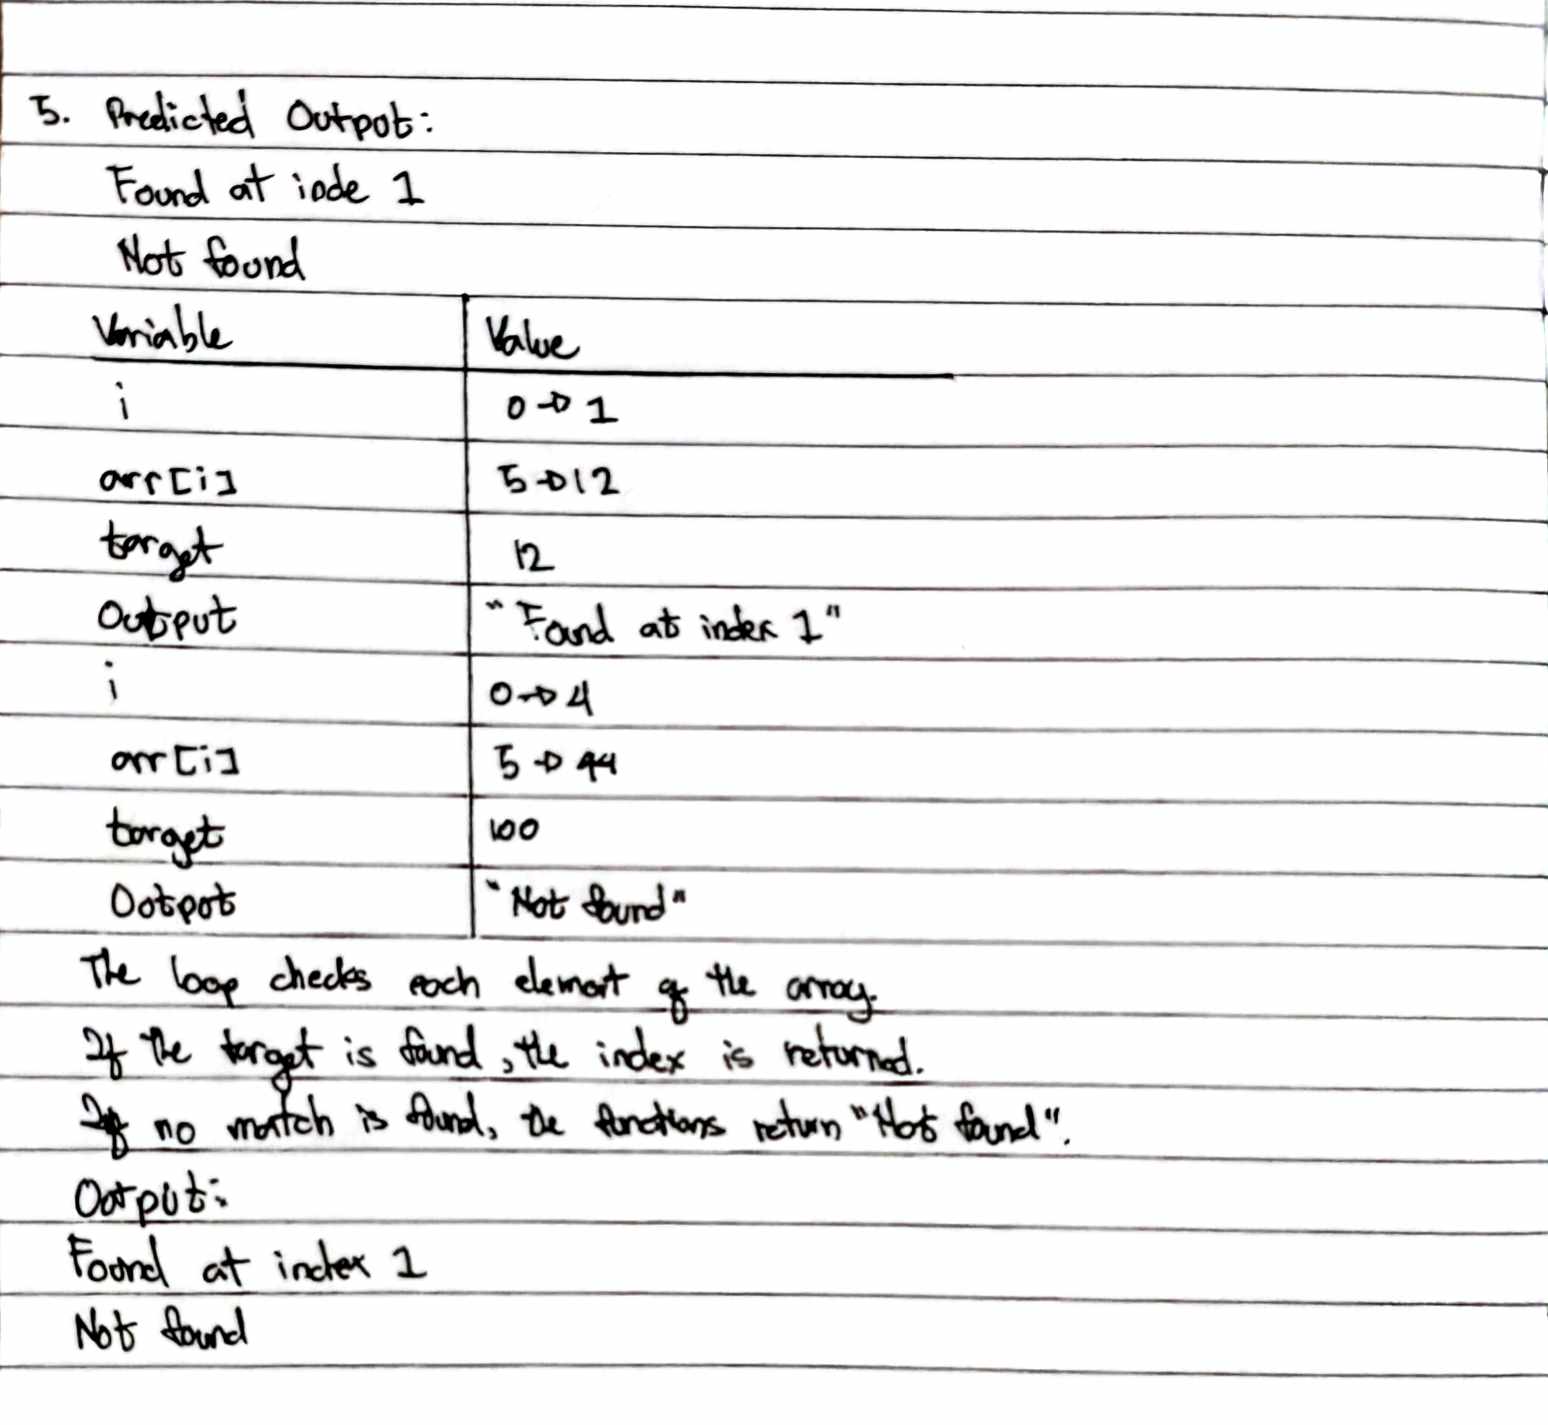 5. Predicted Output:
Found at iode 1
Not found
Variable Value
i 0 → 1
arr[i] 5 → 12
target 12
Output "Found at index 1"
i 0 → 4
arr[i] 5 → 44
target 100
Output "Not found"
The loop checks each element of the array.
If the target is found, the index is returned.
If no match is found, the functions return "Not found".
Output:
Found at index 1
Not found